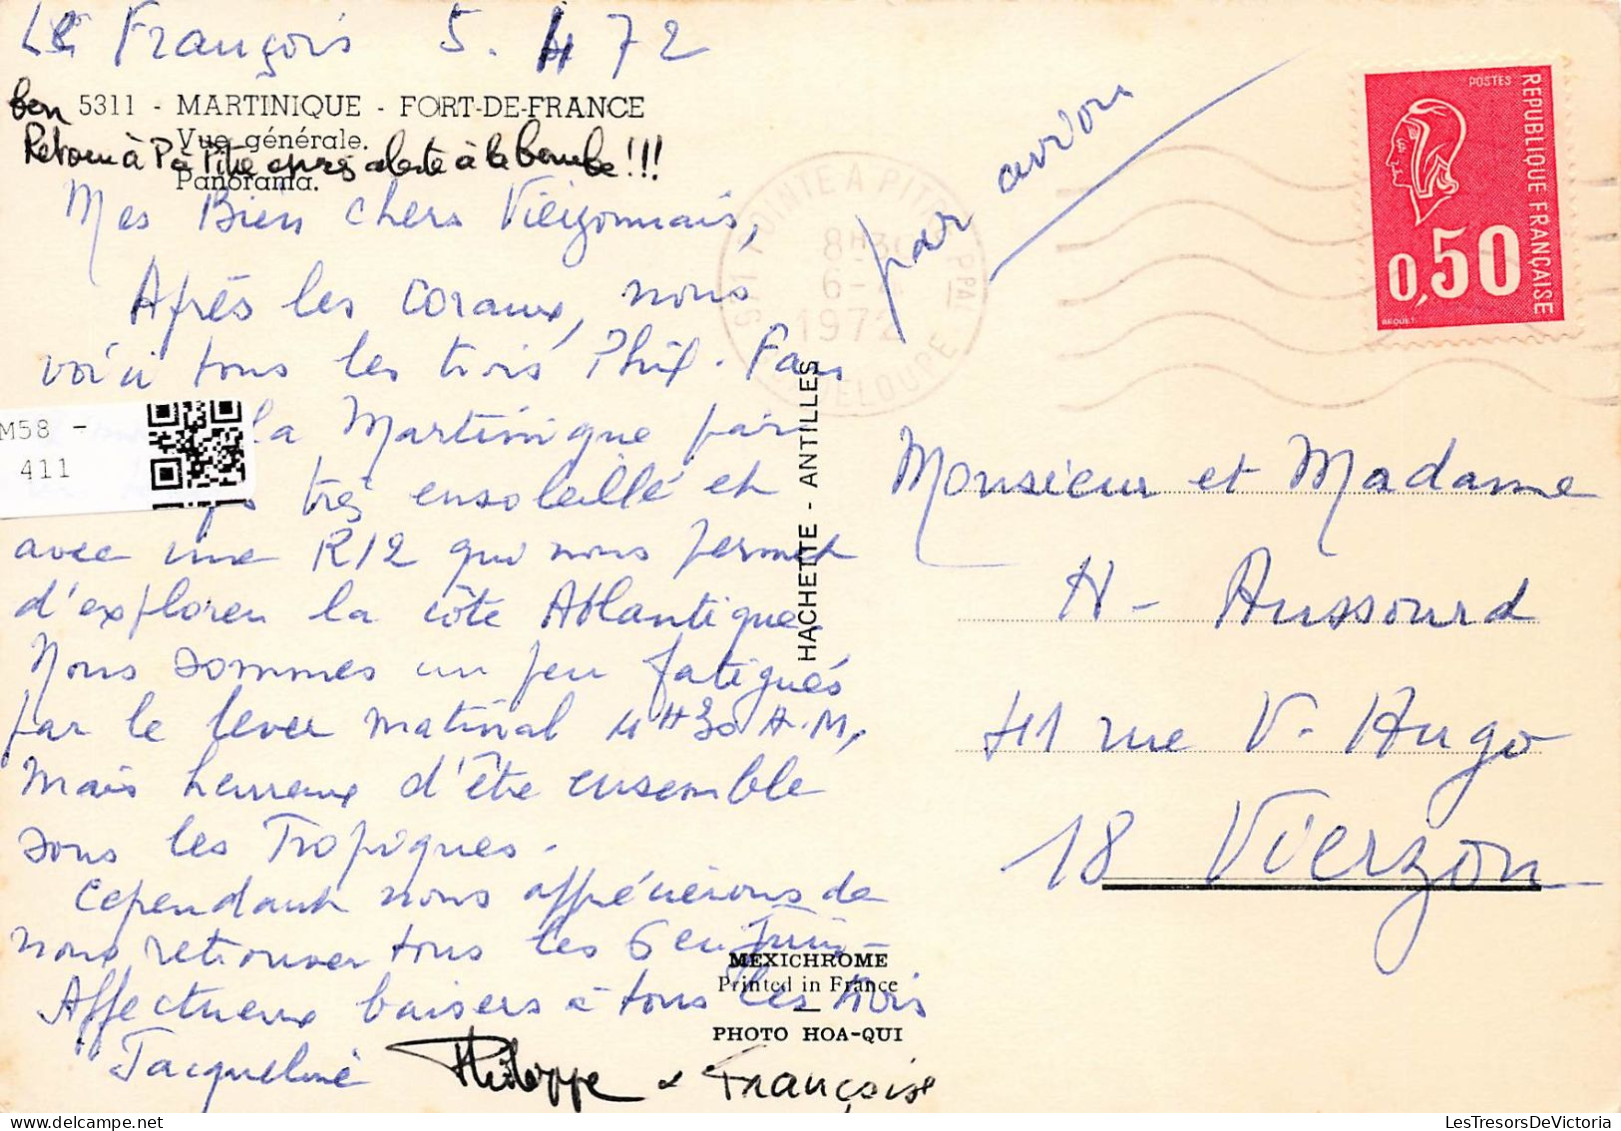 Le François 5.4 72
5311 - MARTINIQUE - FORT-DE-FRANCE
Vue générale.
Panorama.
bon
Retour à P à Pitre après alerte à la bombe!!!
Mes Bien chers Vierzonnais,
Après les coraux, nous
voici tous les trois Phil. Fan
la Martinique par
très ensoleillé et
avec une R12 qui nous permet
d'explorer la côte Atlantique.
Nous sommes un peu fatigués
par le lever matinal 4H30 A.M,
mais heureux d'être ensemble
sous les Tropiques.
Cependant nous apprécierons de
nous retrouver tous les 6 en Juin
Affectueux baisers à tous les trois
Jacqueline Philippe & Françoise
M58 -
411
HACHETTE - ANTILLES
MEXICHROME
Printed in France
PHOTO HOA-QUI
par avion
971 POINTE A PITRE PPAL
8H30
6-4
1972
GUADELOUPE
POSTES
REPUBLIQUE FRANÇAISE
0,50
BEQUET
Monsieur et Madame
H- Aussourd
41 rue V. Hugo
18 Vierzon
LesTresorsDeVictoria